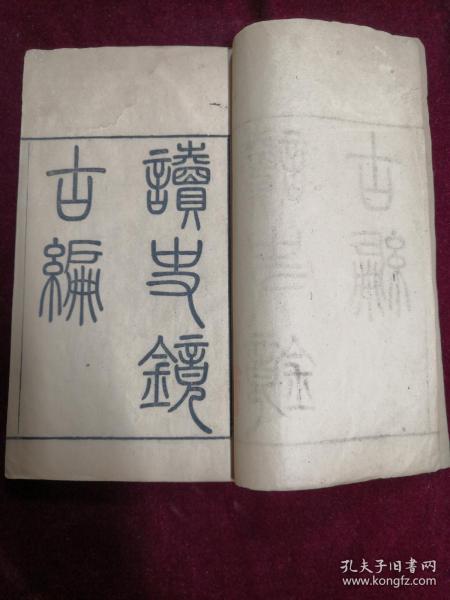 讀史鏡
古編
孔夫子旧书网
www.kongfz.com